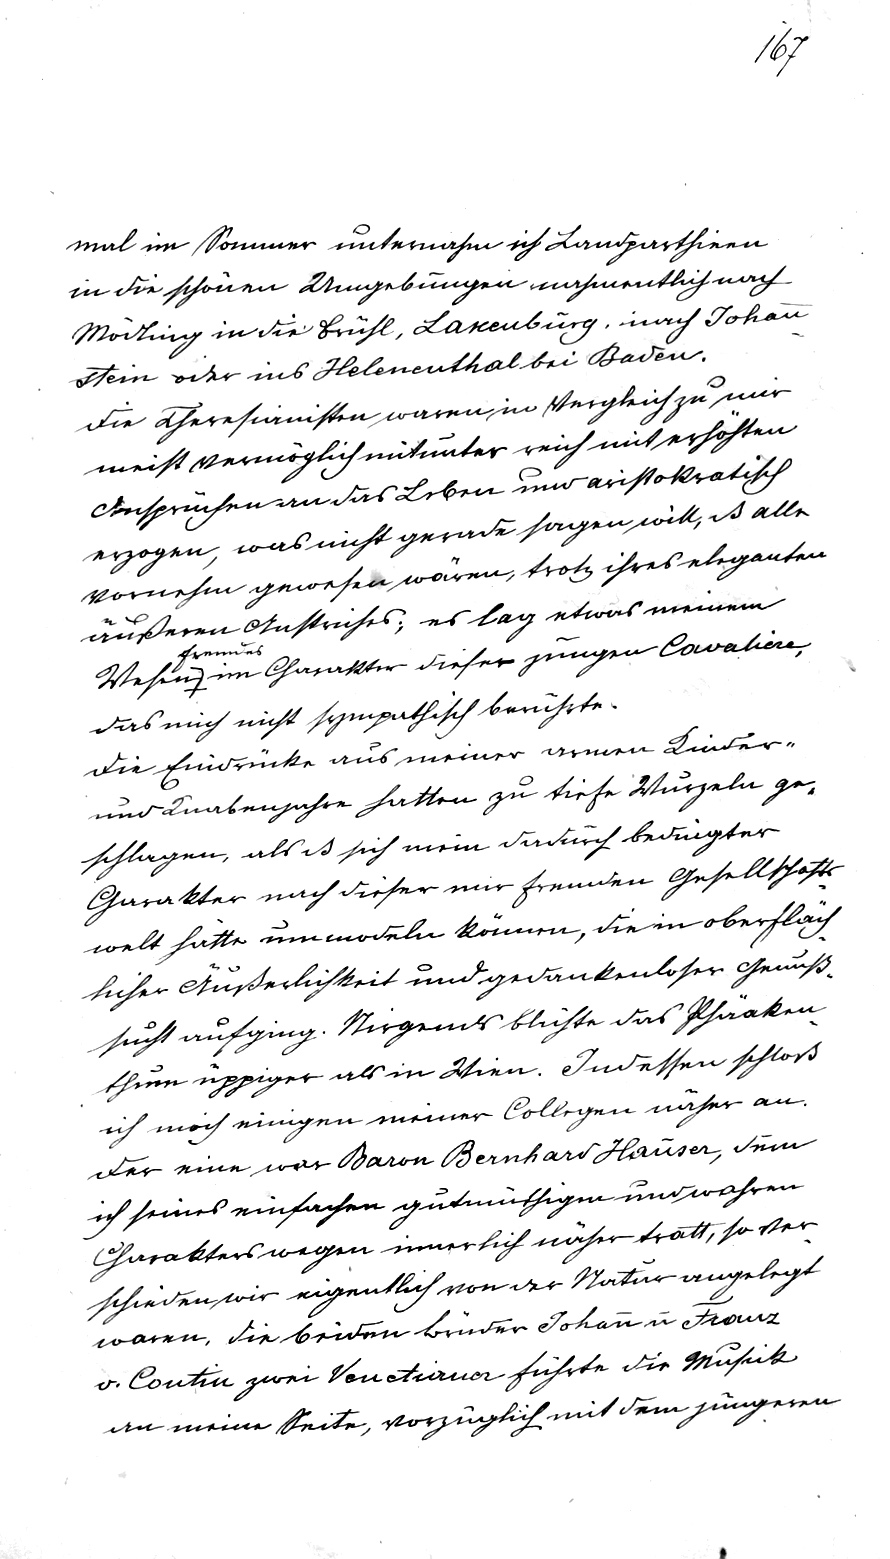 167
mal im Sommer unternahm ich Landparthieen
in die schönen Umgebungen nahmentlich nach
Mödling in die Brühl, Laxenburg, nach Johann
stein oder ins Helenenthal bei Baden.
Die Theresianisten waren im Vergleich zu mir
meist vermöglich mitunter reich mit erhöhten
Ansprüchen an das Leben und aristokratisch
erzogen, was nicht gerade sagen will, ß alle
vornehm gewesen wären, trotz ihres eleganten
äußeren Anstriches; es lag etwas meinem
fremdes
Wesen im Charakter dieser jungen Cavaliere,
das mich nicht sympathisch berührte.
Die Eindrücke aus meiner armen Kinder-
und Knabenjahre hatten zu tiefe Wurzeln ge-
schlagen, als ß sich mein dadurch bedingter
Charakter nach dieser mir fremden Gesellschafts-
welt hätte ummodeln können, die in oberfläch-
licher Äußerlichkeit und gedankenloser Genuß-
sucht aufging. Nirgends blühte das Phäaken-
thum üppiger als in Wien. Indessen schloß
ich mich einigen meiner Collegen näher an.
Der eine war Baron Bernhard Hauser, dem
ich seines einfachen gutmüthigen und wahren
Charakters wegen innerlich näher tratt, so ver-
schieden wir eigentlich von der Natur angelegt
waren, die beiden Brüder Johann u Franz
v. Contin zwei Venetianer führte die Musick
an meine Seite, vorzüglich mit dem jüngeren